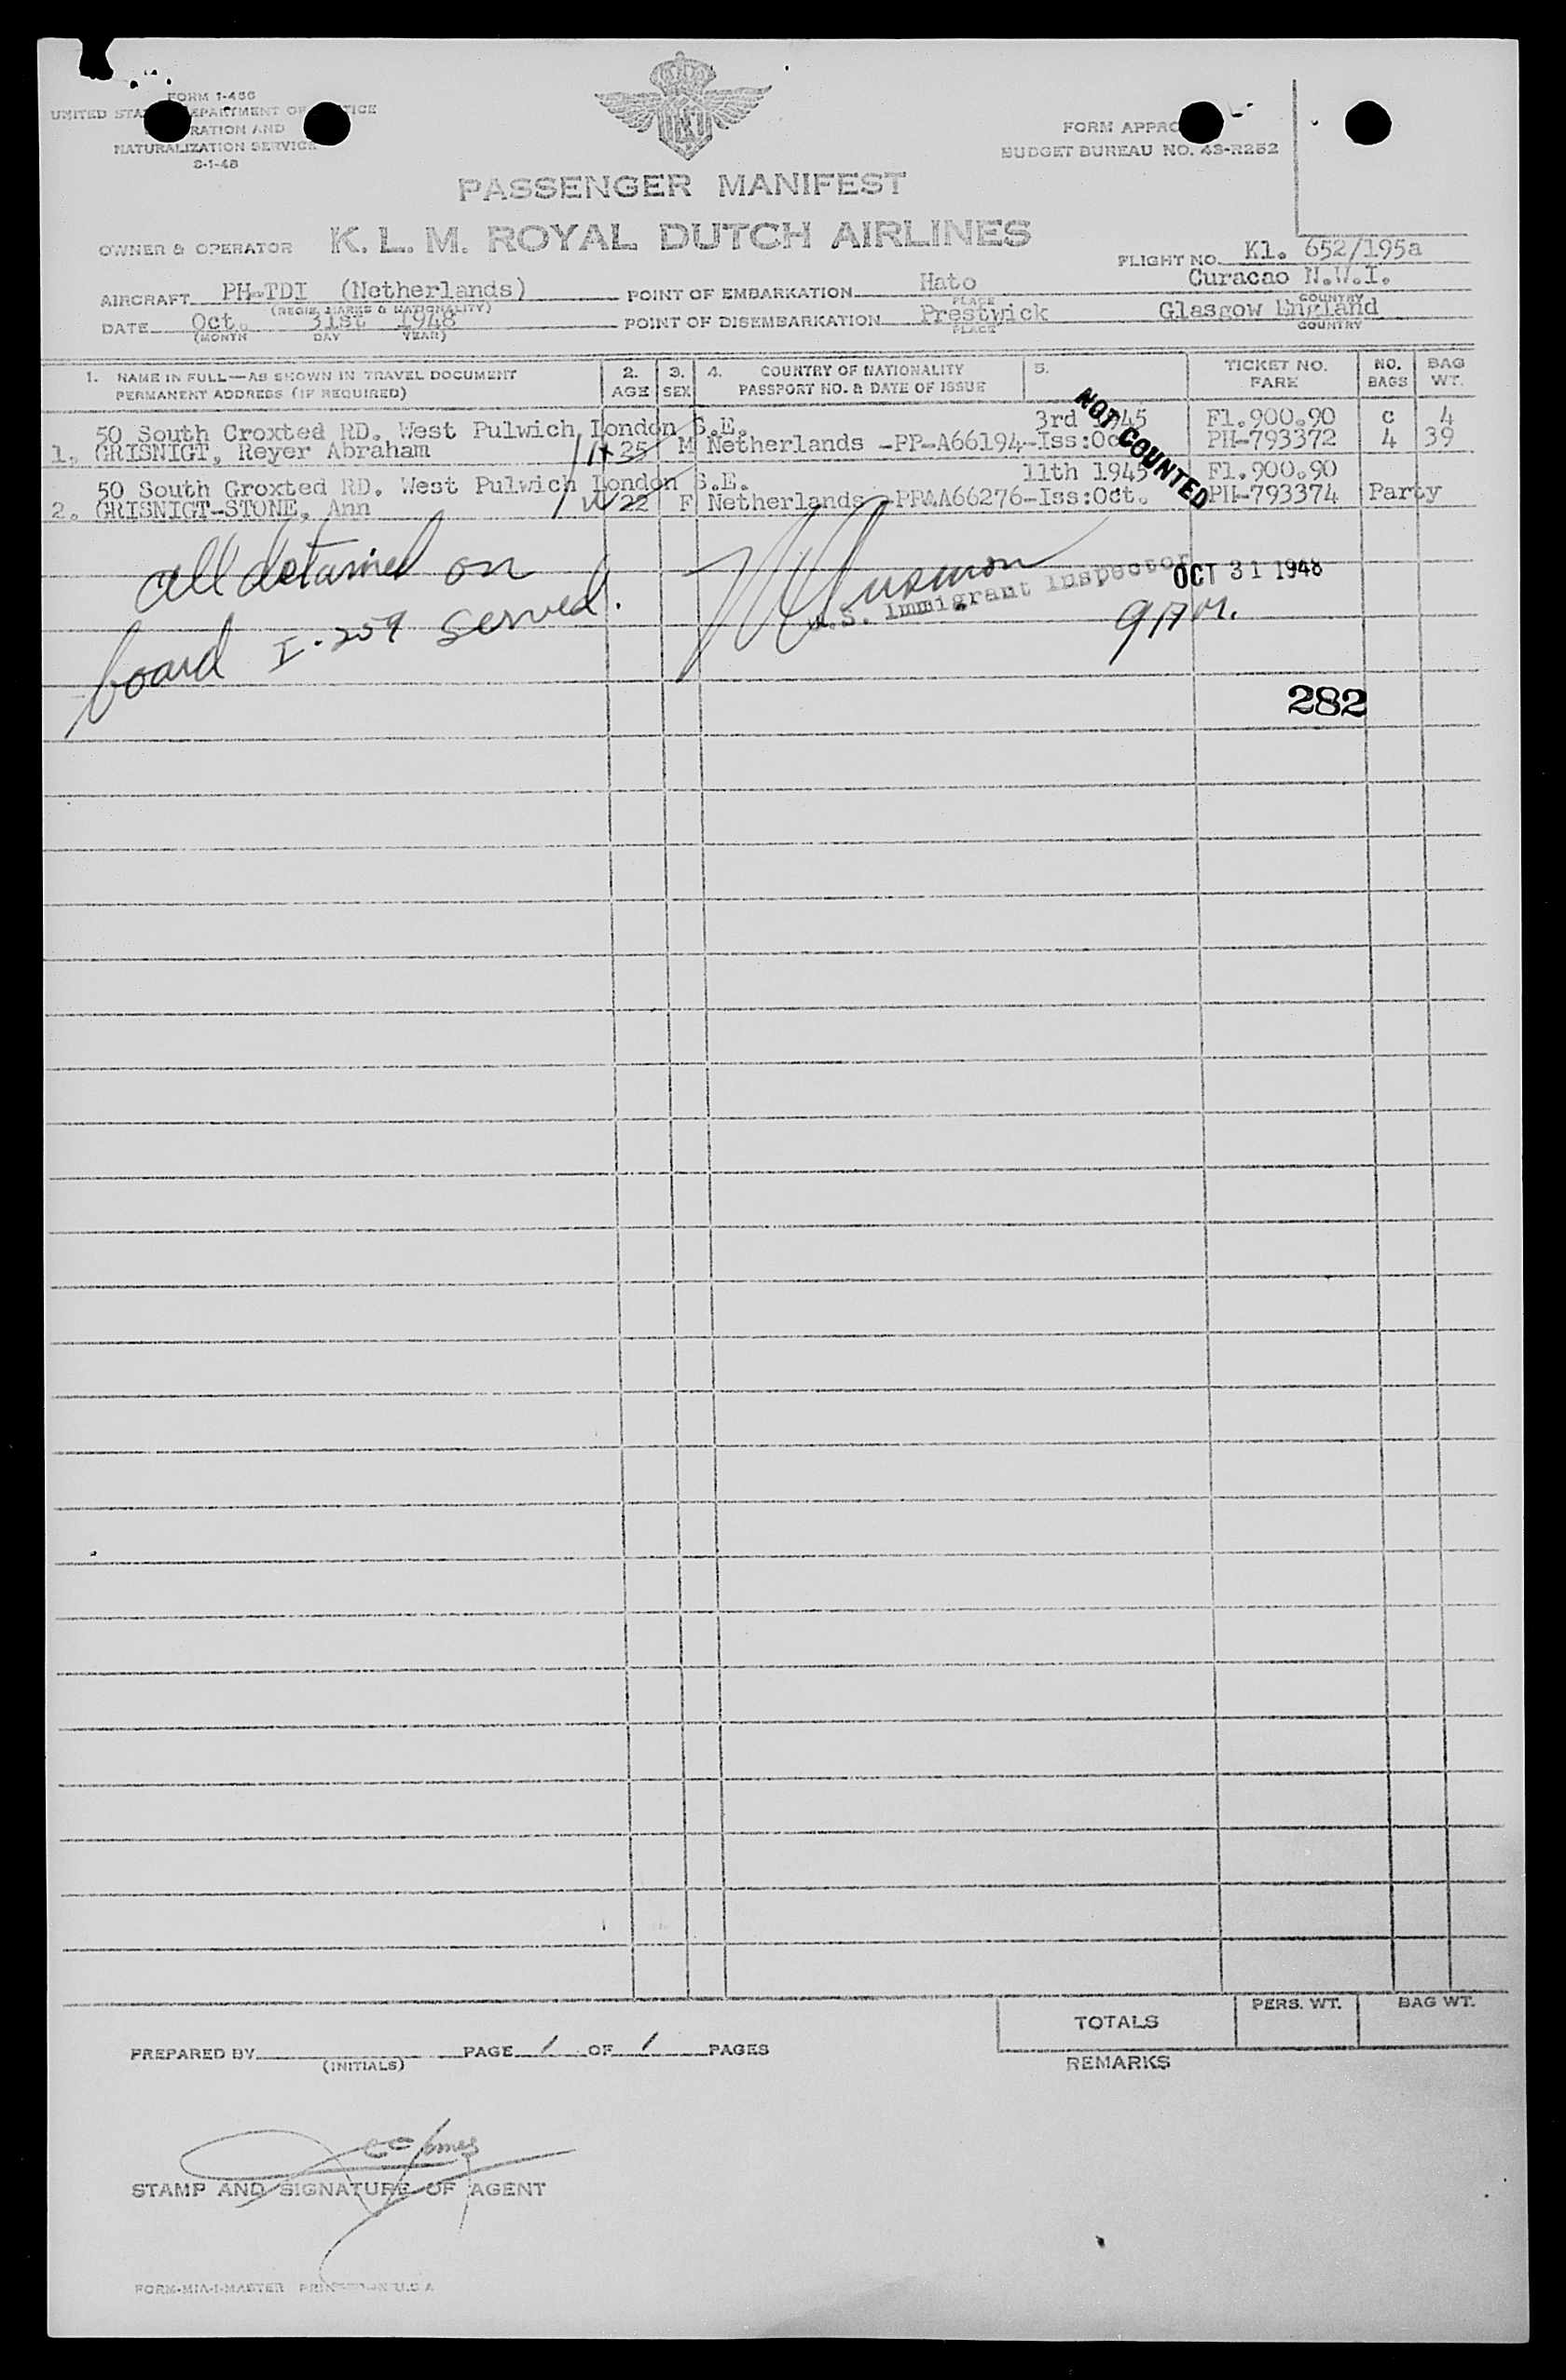 FORM I-466
UNITED STA EPARTMENT OF TICE
RATION AND
NATURALIZATION SERVICE
8-1-48
FORM APPRO
BUDGET BUREAU NO. 43-R252
PASSENGER MANIFEST
OWNER & OPERATOR K. L. M. ROYAL DUTCH AIRLINES
FLIGHT NO. Kl. 652/195a
AIRCRAFT PH-TDI (Netherlands) POINT OF EMBARKATION Hato Curacao N.W.I.
(REGIS. MARKS & NATIONALITY) PLACE COUNTRY
DATE Oct. 31st 1948 POINT OF DISEMBARKATION Prestwick Glasgow England
(MONTH DAY YEAR) PLACE COUNTRY
1. NAME IN FULL—AS SHOWN IN TRAVEL DOCUMENT 2. 3. 4. COUNTRY OF NATIONALITY 5. TICKET NO. NO. BAG
PERMANENT ADDRESS (IF REQUIRED) AGE SEX PASSPORT NO. & DATE OF ISSUE FARE BAGS WT.
50 South Croxted RD. West Pulwich London S.E. 3rd 1945 Fl.900.90 c 4
1. GRISNIGT, Reyer Abraham 25 M Netherlands -PP-A66194-Iss:Oc PH-793372 4 39
NOT COUNTED
50 South Groxted RD. West Pulwich London S.E. 11th 1945 Fl.900.90
2. GRISNIGT-STONE, Ann 22 F Netherlands -PP&A66276-Iss:Oct. PH-793374 Party
all detained on
board I-259 served.
U.S. Immigrant Inspector
OCT 31 1948
9 AM.
282
TOTALS PERS. WT. BAG WT.
PREPARED BY PAGE 1 OF 1 PAGES
(INITIALS)
REMARKS
STAMP AND SIGNATURE OF AGENT
FORM-MIA-1-MASTER PRINTED IN U.S.A